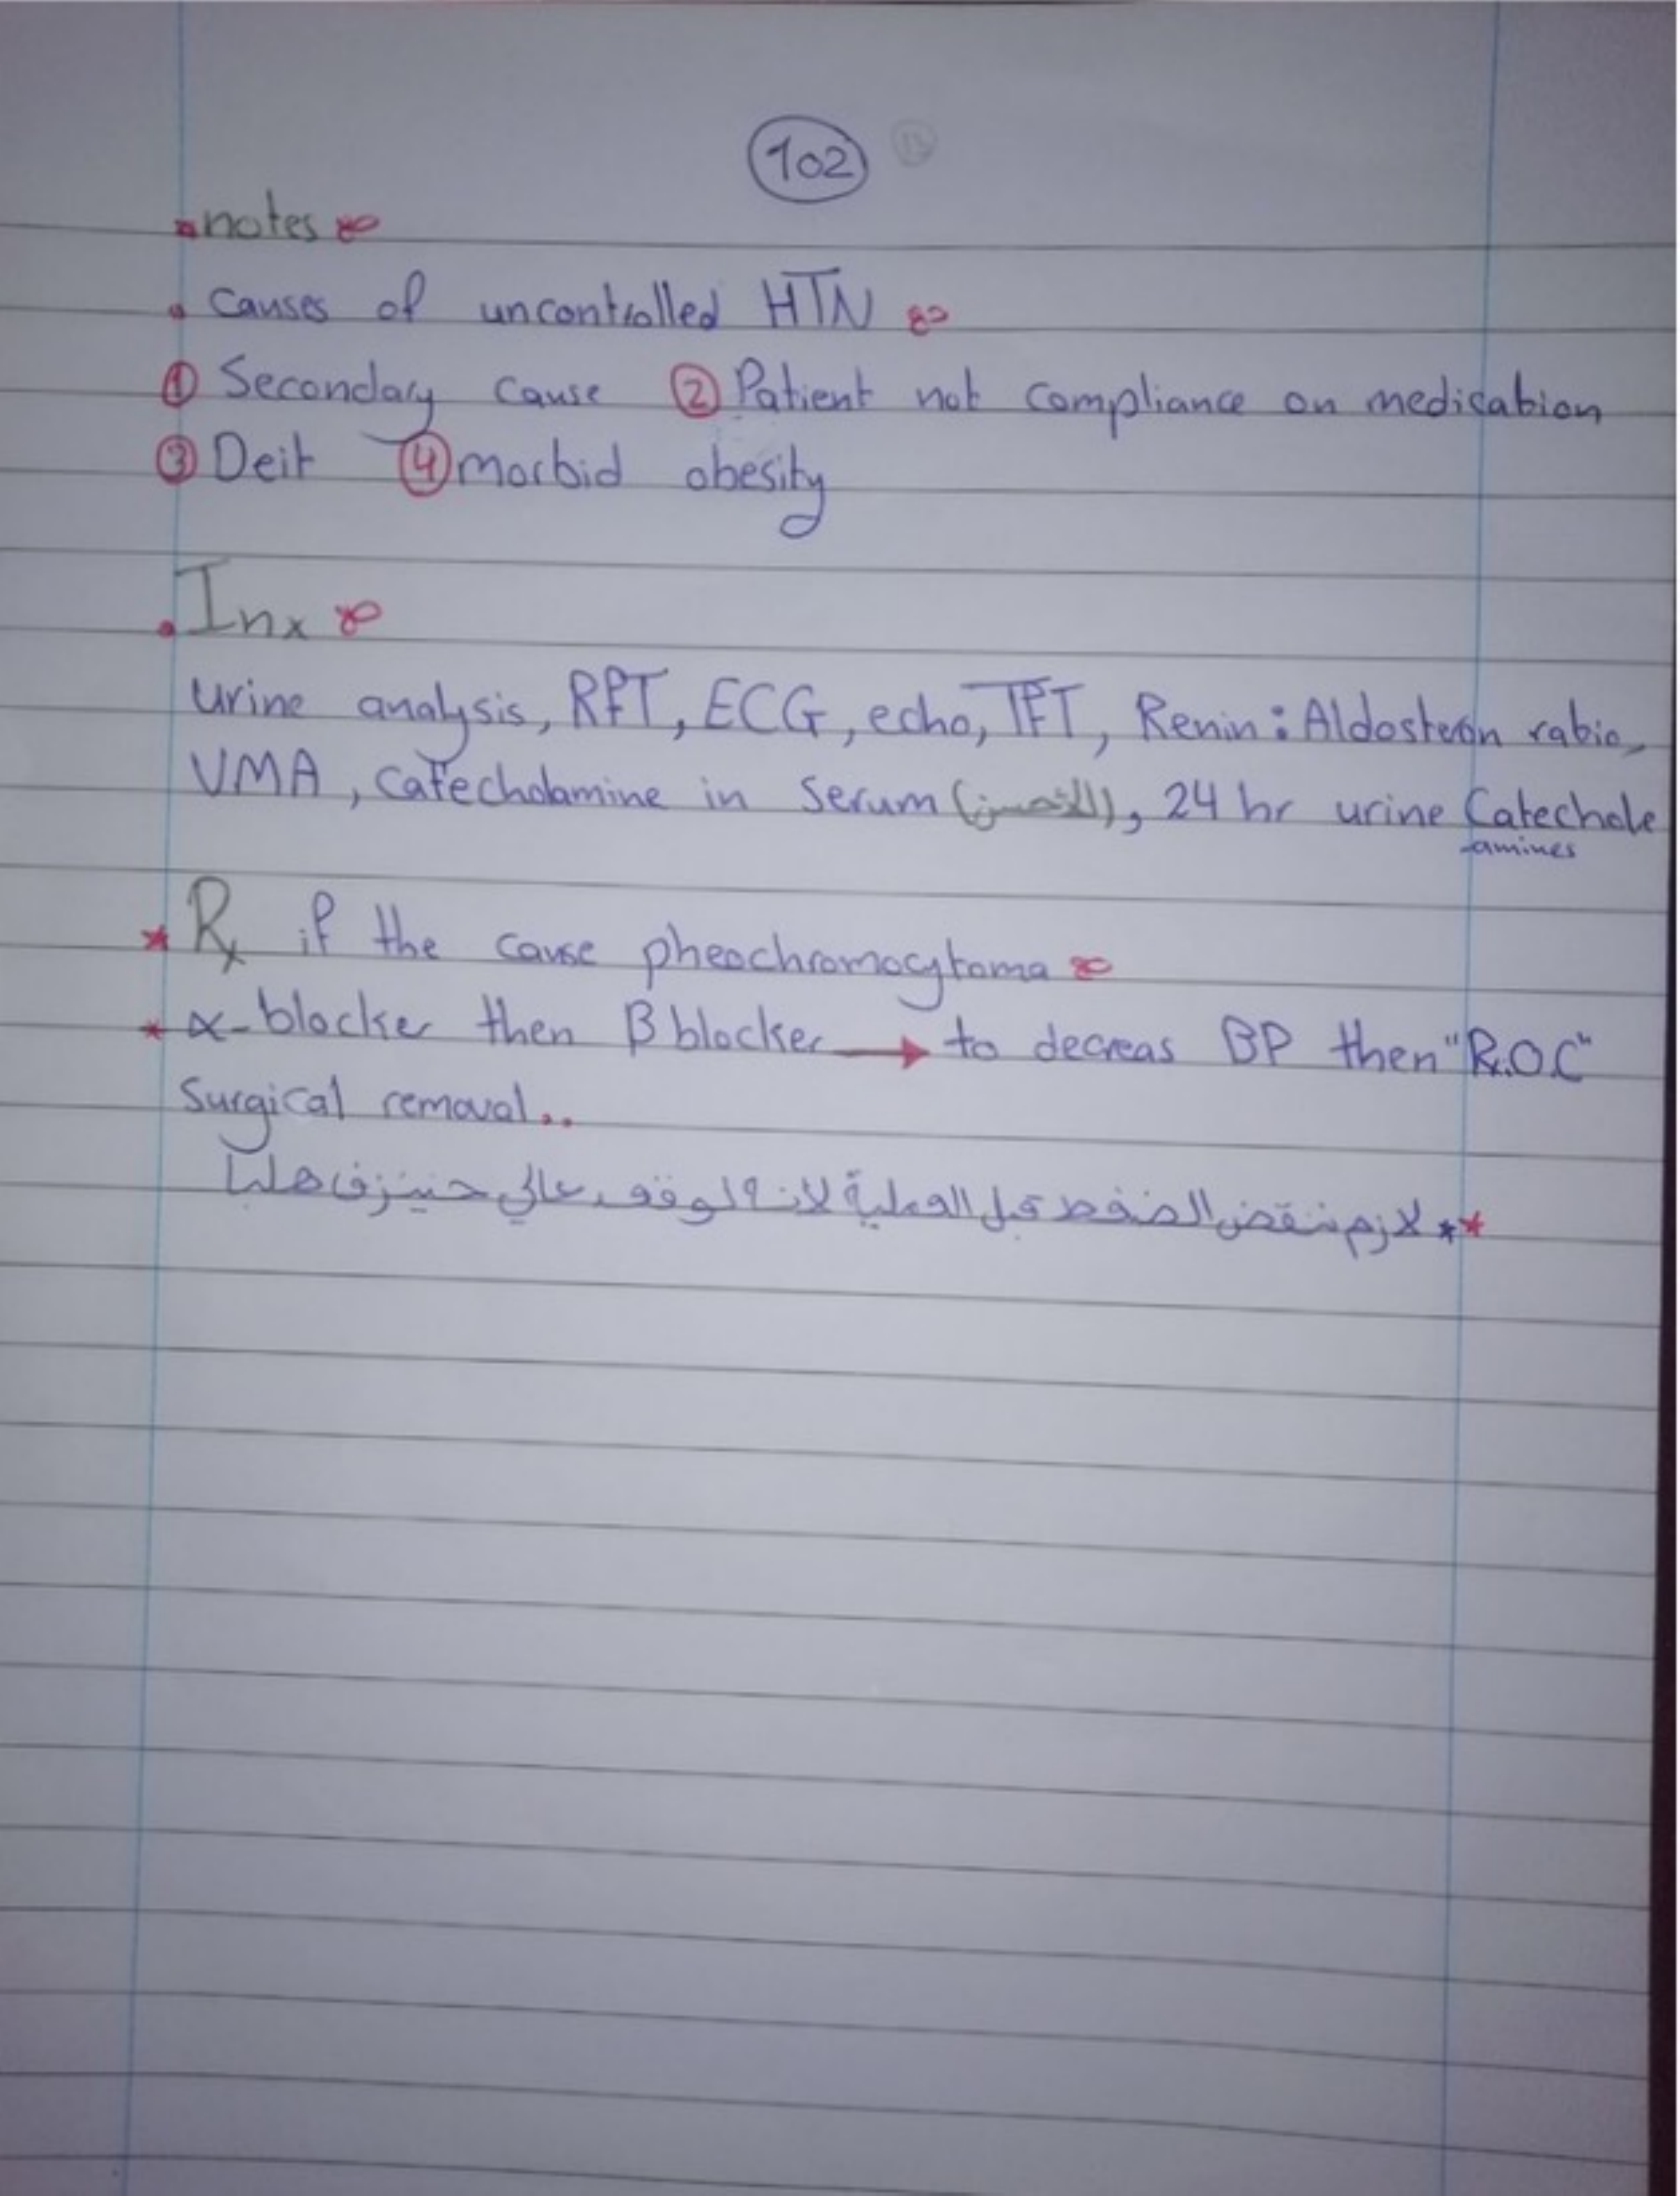 102
notes
Causes of uncontrolled HTN
① Secondary cause ② Patient not compliance on medication
③ Deit ④ morbid obesity
Inx
Urine analysis, RFT, ECG, echo, TFT, Renin: Aldosteron ratio,
VMA, Catecholamine in Serum (), 24 hr urine Catechole
-amines
* Rx if the cause pheochromocytoma
* α-blocker then β blocker → to decreas BP then "R.O.C"
Surgical removal..
** لازم ننقص الضغط قبل العملية لانه لو قعد عالي حينزف هلبا